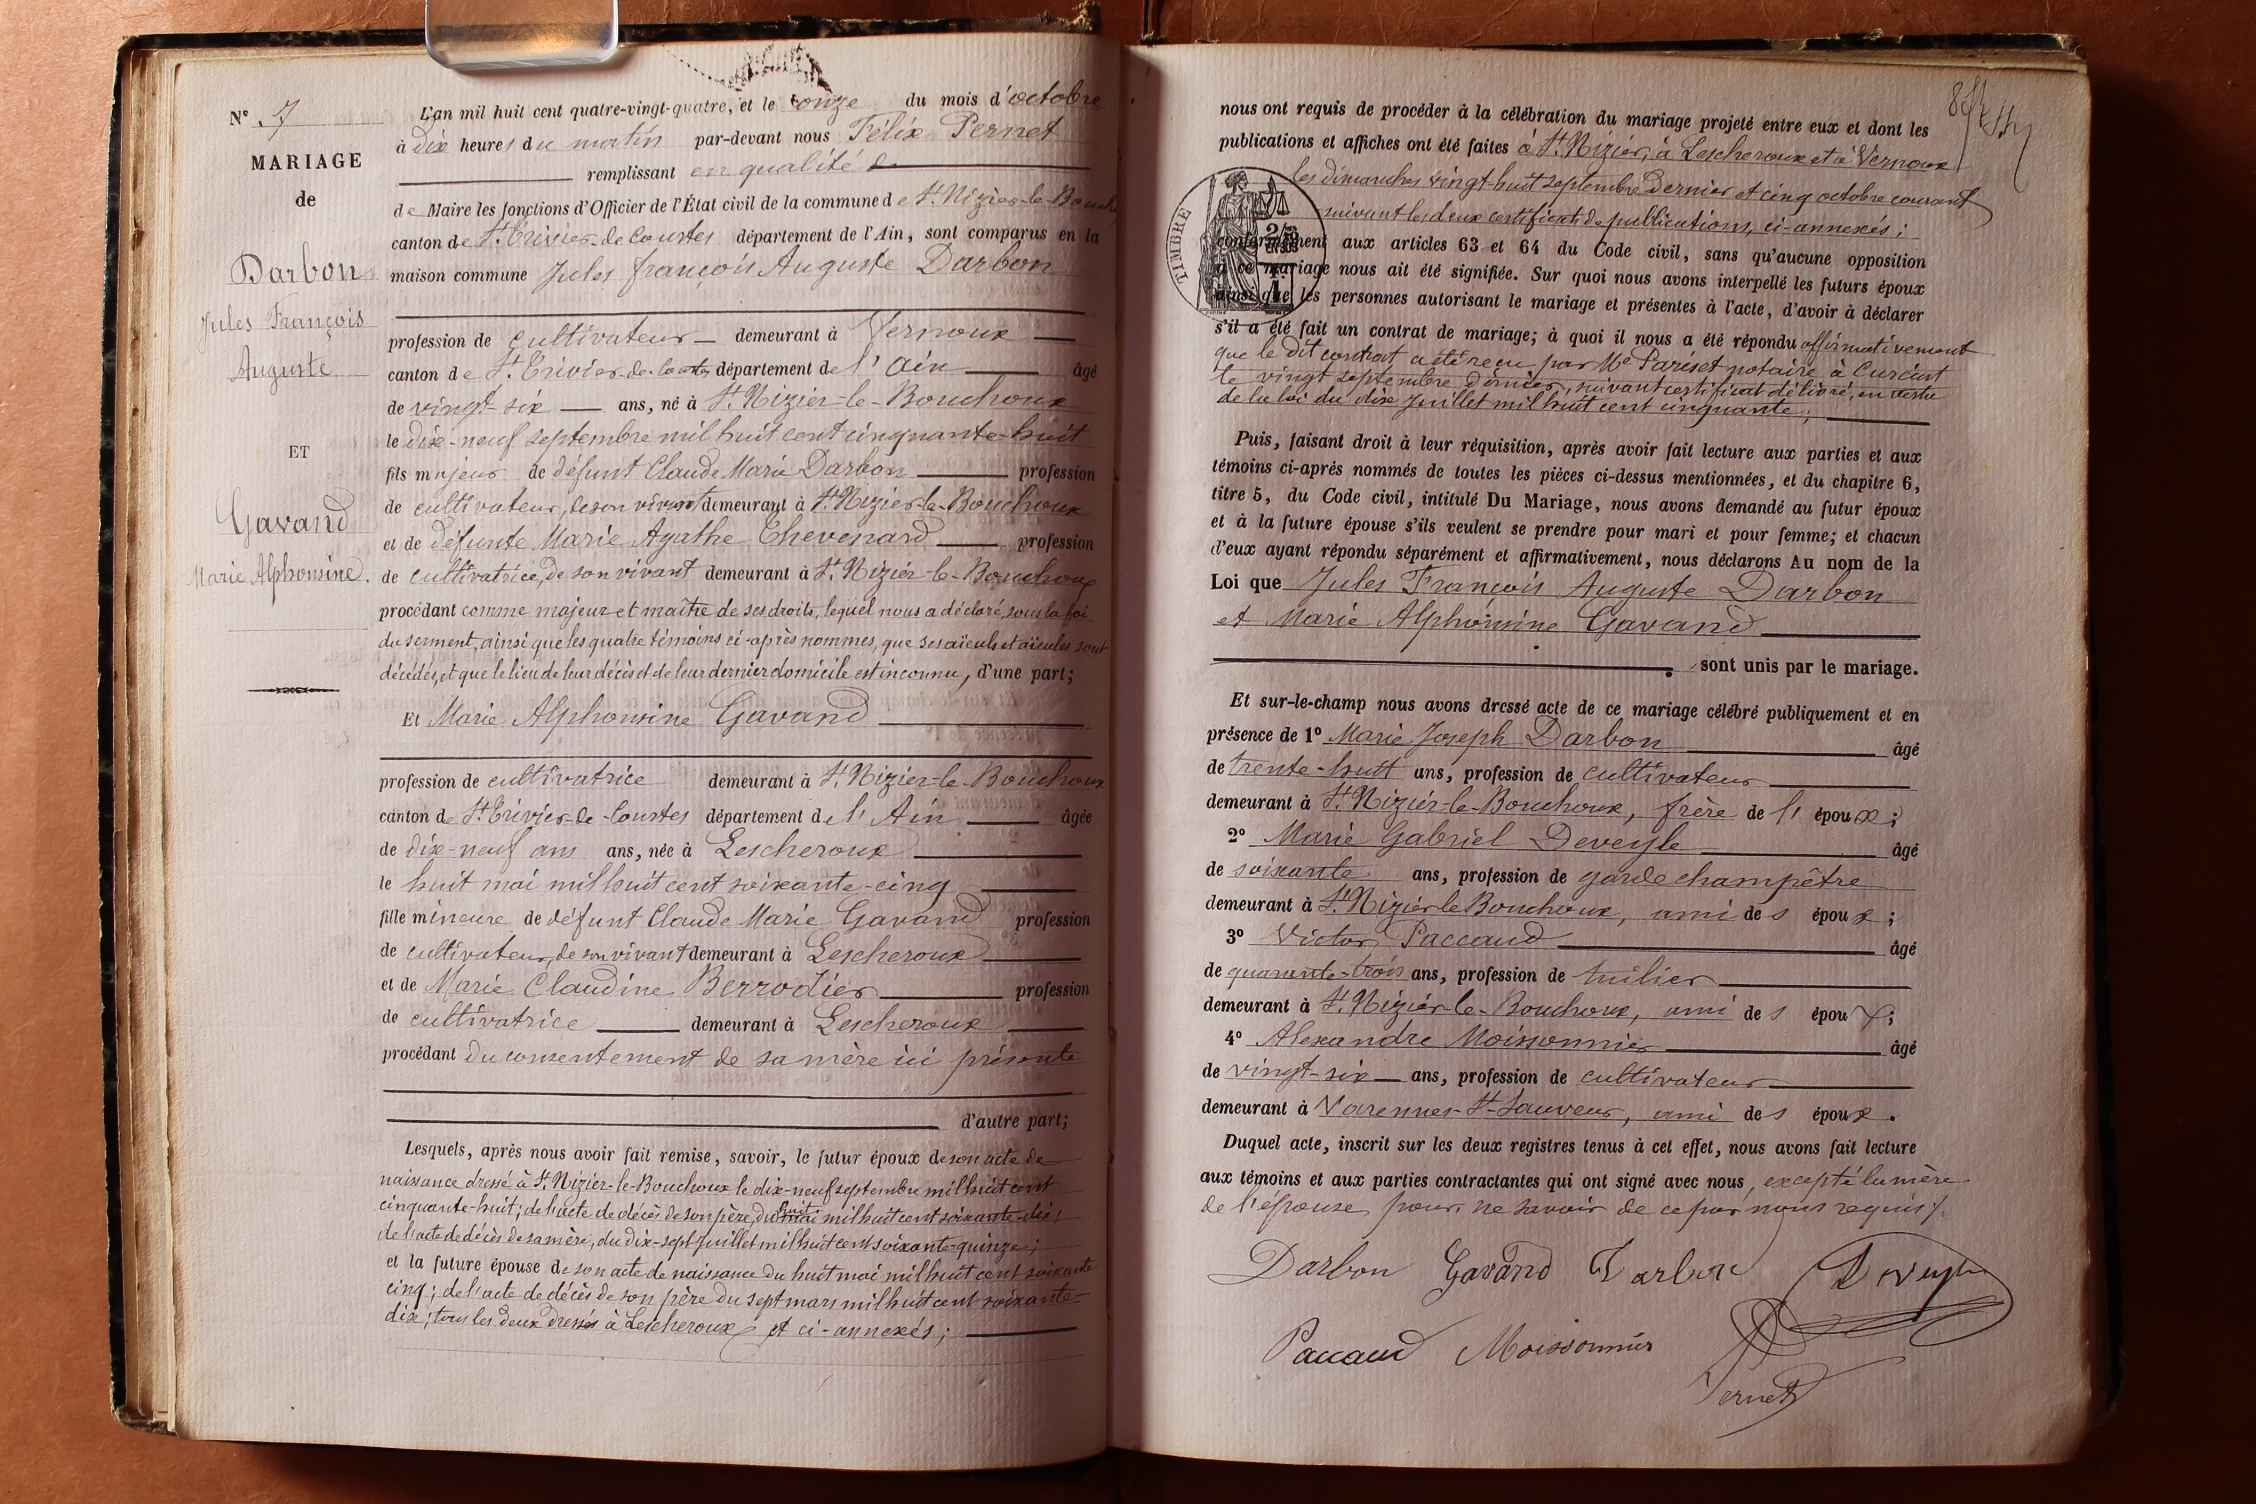 N° 7
MARIAGE
de
Darbon
Jules François
Auguste
ET
Gavand
Marie Alphonsine.
L'an mil huit cent quatre-vingt-quatre, et le onze du mois d'octobre
à dix heures du matin par-devant nous Félix Pernet
remplissant en qualité
de Maire les fonctions d'Officier de l'État civil de la commune de St. Nizier-le-Bouch
canton de St. Trivier-de-Courtes département de l'Ain, sont comparus en la
maison commune Jules françois Auguste Darbon
profession de cultivateur demeurant à Vernoux
canton de St. Trivier-de-Courtes département de l'Ain âgé
de vingt-six ans, né à St. Nizier-le-Bouchoux
le dix-neuf septembre mil huit cent cinquante-huit
fils majeur de défunt Claude Marie Darbon profession
de cultivateur, de son vivant demeurant à St. Nizier-le-Bouchoux
et de défunte Marie Agathe Thevenard profession
de cultivatrice, de son vivant demeurant à St. Nizier-le-Bouchoux
procédant comme majeur et maître de ses droits, lequel nous a déclaré, sous la foi
du serment, ainsi que les quatre témoins ci-après nommés, que ses aïeuls et aïeules sont
décédés, et que le lieu de leur décès et de leur dernier domicile est inconnu, d'une part;
Et Marie Alphonsine Gavand
profession de cultivatrice demeurant à St. Nizier-le-Bouchoux
canton de St. Trivier-de-Courtes département de l'Ain âgée
de dix-neuf ans ans, née à Lescheroux
le huit mai mil huit cent soixante-cinq
fille mineure de défunt Claude Marie Gavand profession
de cultivateur, de son vivant demeurant à Lescheroux
et de Marie Claudine Berrodier profession
de cultivatrice demeurant à Lescheroux
procédant du consentement de sa mère ici présente
d'autre part;
Lesquels, après nous avoir fait remise, savoir, le futur époux de son acte de
naissance dressé à St. Nizier-le-Bouchoux le dix-neuf septembre mil huit cent
cinquante-huit; de l'acte de décès de son père, du huit mai mil huit cent soixante-dix;
de l'acte de décès de sa mère, du dix-sept juillet mil huit cent soixante-quinze;
et la future épouse de son acte de naissance du huit mai mil huit cent soixante
cinq; de l'acte de décès de son père du sept mars mil huit cent soixante-
dix; tous les deux dressés à Lescheroux et ci-annexés;
nous ont requis de procéder à la célébration du mariage projeté entre eux et dont les
publications et affiches ont été faites à St. Nizier, à Lescheroux et à Vernoux
les dimanches vingt-huit septembre dernier et cinq octobre courant
suivant les deux certificats de publications, ci-annexés;
TIMBRE
conformément aux articles 63 et 64 du Code civil, sans qu'aucune opposition
à ce mariage nous ait été signifiée. Sur quoi nous avons interpellé les futurs époux
ainsi que les personnes autorisant le mariage et présentes à l'acte, d'avoir à déclarer
s'il a été fait un contrat de mariage; à quoi il nous a été répondu affirmativement
que le dit contrat a été reçu par Me Pariset notaire à Curciat
le vingt septembre dernier, suivant certificat délivré, en vertu
de la loi du dix Juillet mil huit cent cinquante;
Puis, faisant droit à leur réquisition, après avoir fait lecture aux parties et aux
témoins ci-après nommés de toutes les pièces ci-dessus mentionnées, et du chapitre 6,
titre 5, du Code civil, intitulé Du Mariage, nous avons demandé au futur époux
et à la future épouse s'ils veulent se prendre pour mari et pour femme; et chacun
d'eux ayant répondu séparément et affirmativement, nous déclarons Au nom de la
Loi que Jules François Auguste Darbon
et Marie Alphonsine Gavand
sont unis par le mariage.
Et sur-le-champ nous avons dressé acte de ce mariage célébré publiquement et en
présence de 1° Marie Joseph Darbon âgé
de trente-huit ans, profession de cultivateur
demeurant à St. Nizier-le-Bouchoux, frère de l'époux;
2° Marie Gabriel Deveyle âgé
de soixante ans, profession de garde champêtre
demeurant à St. Nizier le Bouchoux, ami des époux;
3° Victor Paccaud âgé
de quarante-trois ans, profession de tuilier
demeurant à St. Nizier-le-Bouchoux, ami des époux;
4° Alexandre Moissonnier âgé
de vingt-six ans, profession de cultivateur
demeurant à Varennes-St-Sauveur, ami des époux.
Duquel acte, inscrit sur les deux registres tenus à cet effet, nous avons fait lecture
aux témoins et aux parties contractantes qui ont signé avec nous, excepté la mère
de l'épouse, pour ne savoir de ce par nous requis.
Darbon Gavand Darbon Deveyle
Paccaud Moissonnier
Pernet